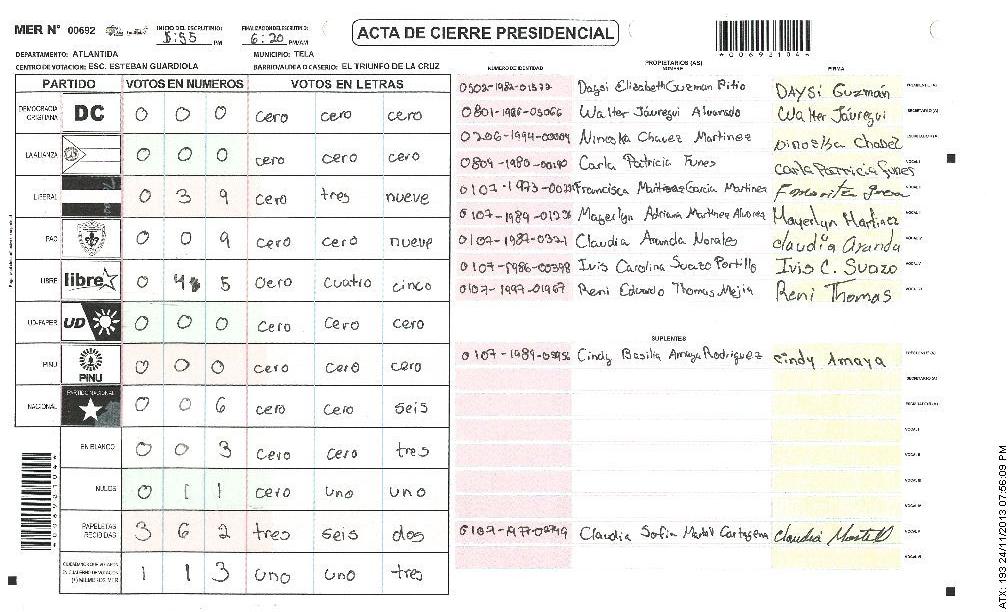 MER Nº 00692 INICIO DEL ESCRUTINIO: 5:55 PM FINALIZACION DEL ESCRUTINIO: 6:20 PM/AM
ACTA DE CIERRE PRESIDENCIAL
DEPARTAMENTO: ATLANTIDA MUNICIPIO: TELA
CENTRO DE VOTACION: ESC. ESTEBAN GUARDIOLA BARRIO/ALDEA O CASERIO: EL TRIUNFO DE LA CRUZ
PARTIDO VOTOS EN NUMEROS VOTOS EN LETRAS
DEMOCRACIA CRISTIANA DC 0 0 0 cero cero cero
LA ALIANZA 0 0 0 cero cero cero
LIBERAL 0 3 9 cero tres nueve
PAC 0 0 9 cero cero nueve
LIBRE libre 0 4 5 cero cuatro cinco
UD-FAPER UD 0 0 0 cero cero cero
PINU PINU 0 0 0 cero cero cero
NACIONAL PARTIDO NACIONAL 0 0 6 cero cero seis
EN BLANCO 0 0 3 cero cero tres
NULOS 0 1 1 cero uno uno
PAPELETAS RECIBIDAS 3 6 2 tres seis dos
1 1 3 uno uno tres
PROPIETARIOS (AS)
NUMERO DE IDENTIDAD NOMBRE FIRMA
Daysi Elizabeth Guzman DAYSI Guzmán
0801-1986-05066 Walter Jáuregui Alvarado Walter Jáuregui
Chavez Martinez
Carla Patricia Funes Carla Patricia Funes
Garcia Martinez
Mayerlyn Adriana Martinez Mayerlyn Martinez
Claudia Aranda Norales Claudia Aranda
0107-1986-00398 Ivis Carolina Suazo Portillo Ivis C. Suazo
0107-1997-01967 Reni Eduardo Thomas Mejia Reni Thomas
SUPLENTES
Cindy Basilia Amaya Rodriguez Cindy Amaya
Claudia Sofia Cartagena Claudia
ATX: 193 24/11/2013 07:56:09 PM